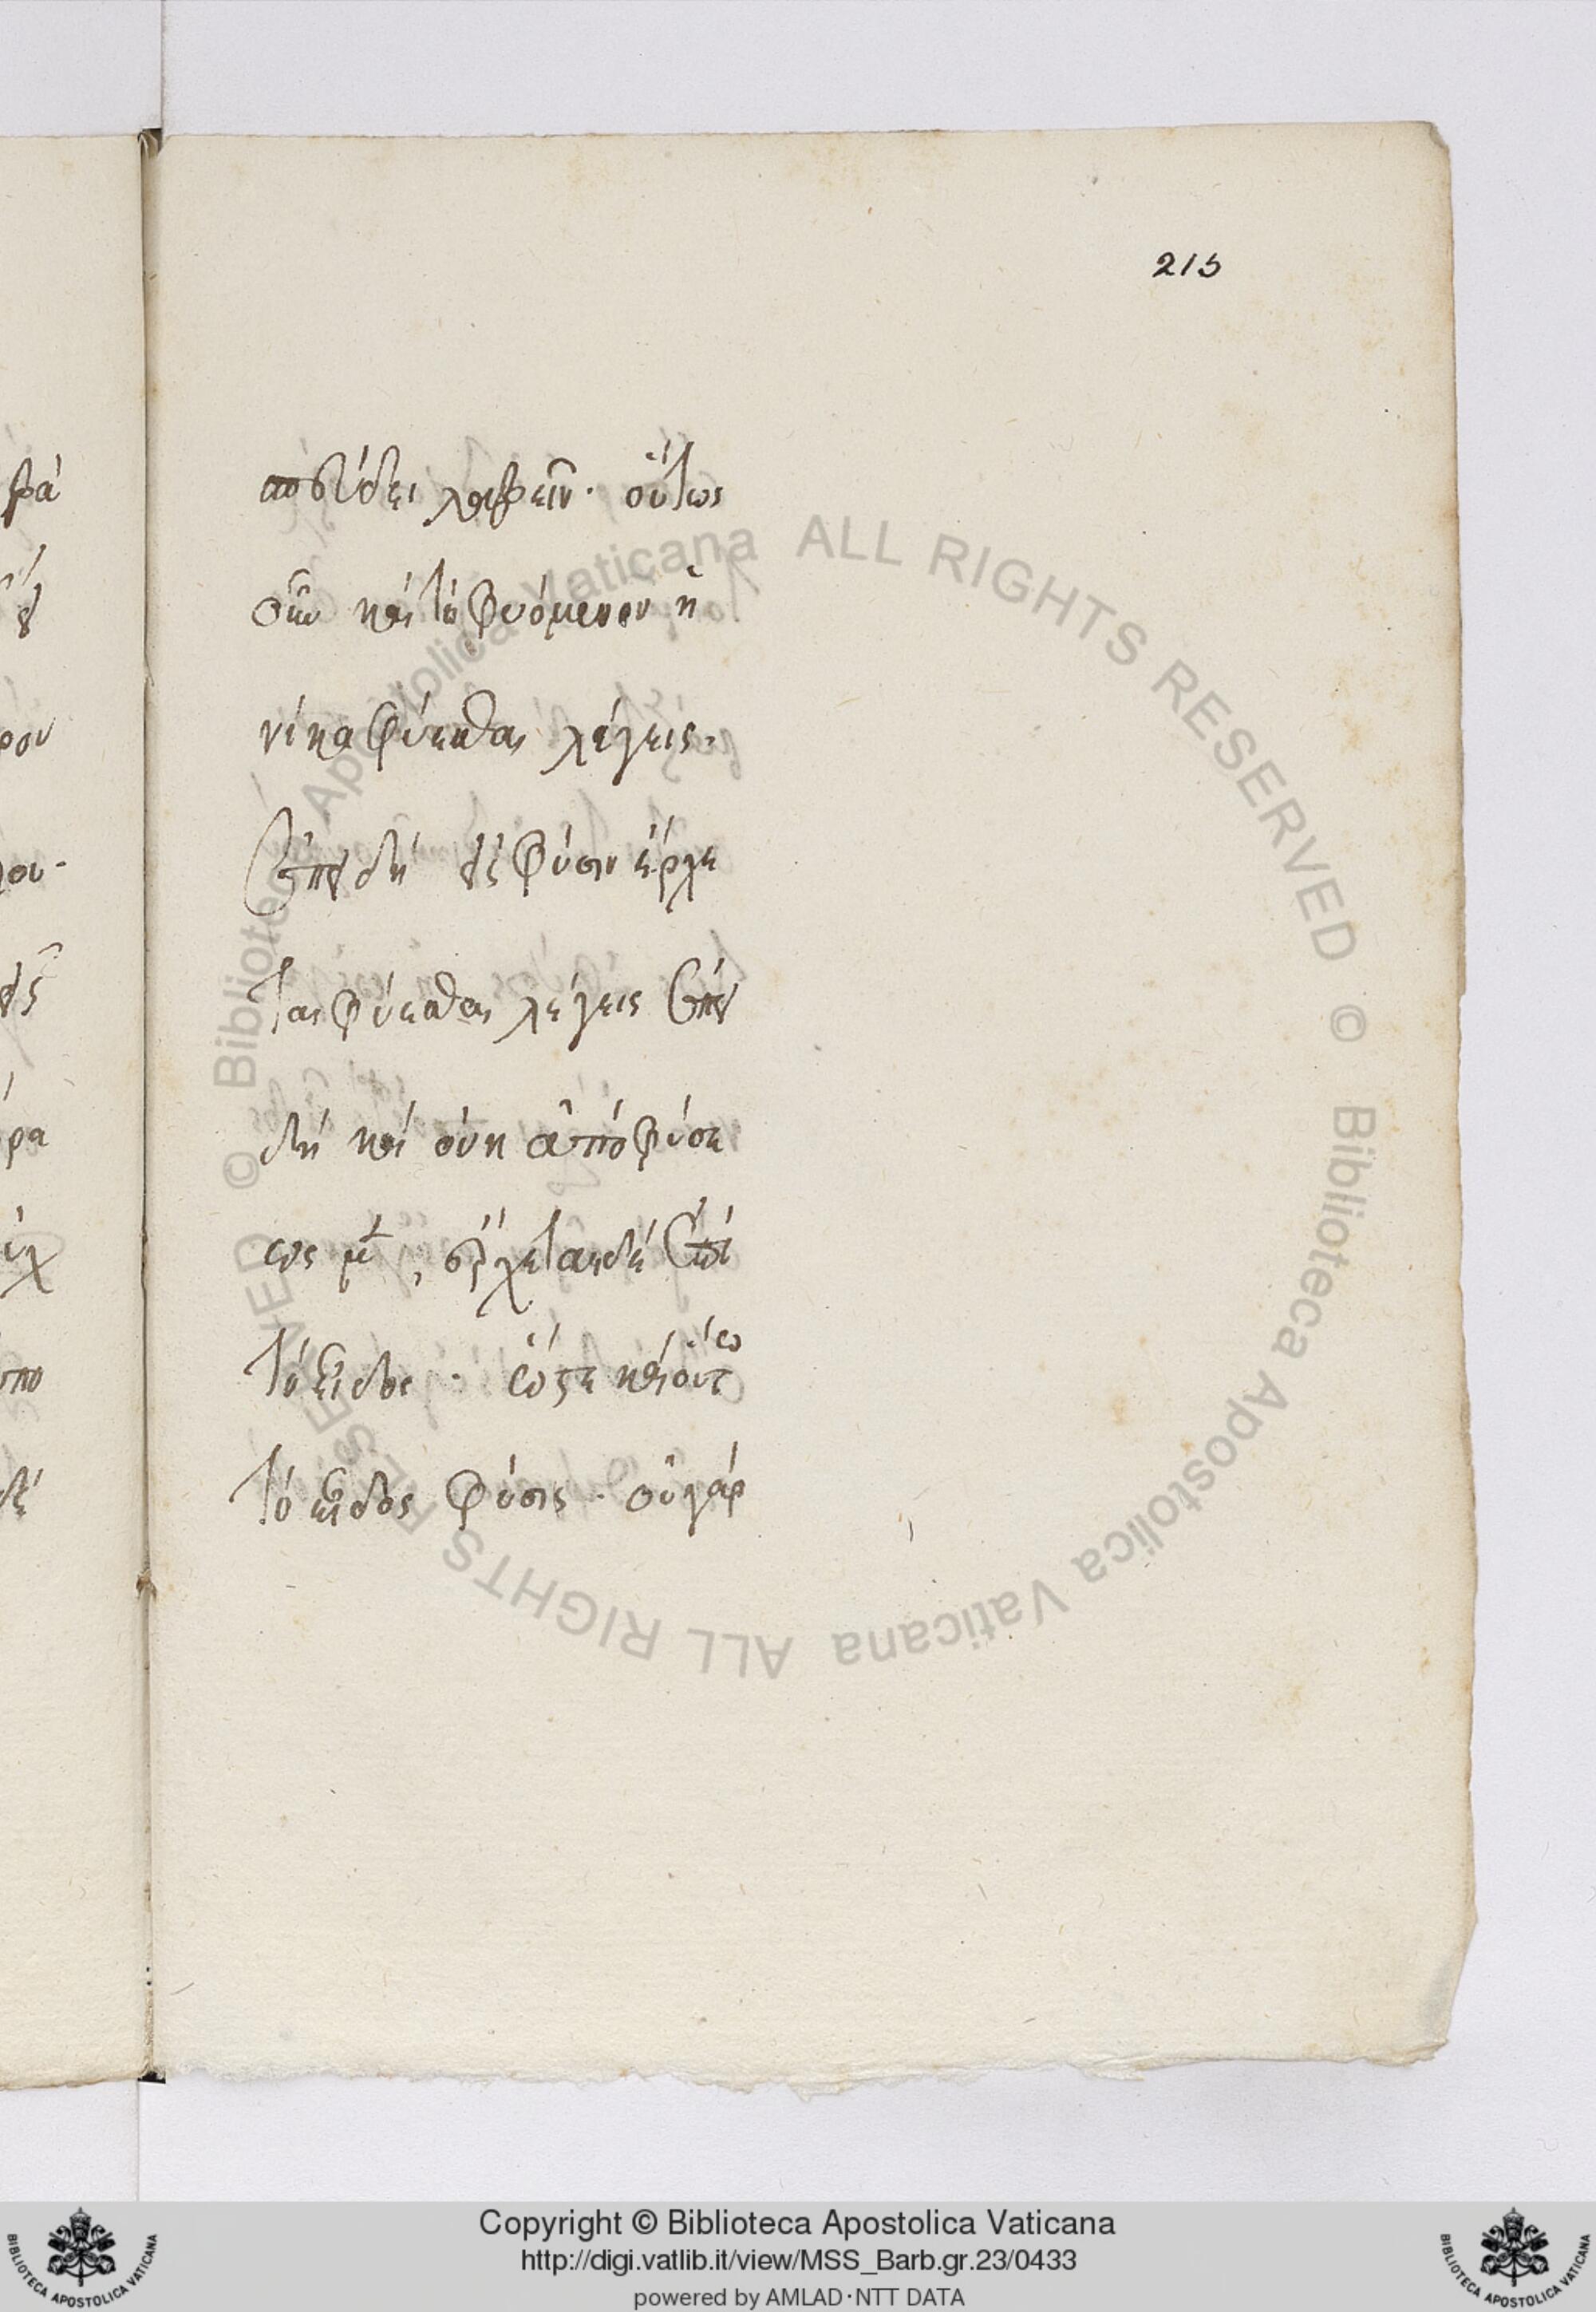 215
λαβεῖν· οὕτως
οὖν καὶ τὸ φυόμενον ἡ
νίκα φύεσθαι λέγεις·
ἐπειδὴ εἰς φύσιν ἔρχε
ται φύεσθαι λέγεις ἐπει
δὴ καὶ οὐκ ἀπὸ φύσε
ως μ , ἔρχεται δὲ ἐπὶ
τὸ εἶδος · ὥστε καὶ οὕτω
τὸ εἶδος φύσις · οὐ γὰρ
ρον
ρα
© Biblioteca Apostolica Vaticana ALL RIGHTS RESERVED © Biblioteca Apostolica Vaticana ALL RIGHTS RESERVED
Copyright © Biblioteca Apostolica Vaticana
http://digi.vatlib.it/view/MSS_Barb.gr.23/0433
powered by AMLAD·NTT DATA
BIBLIOTECA APOSTOLICA VATICANA
BIBLIOTECA APOSTOLICA VATICANA